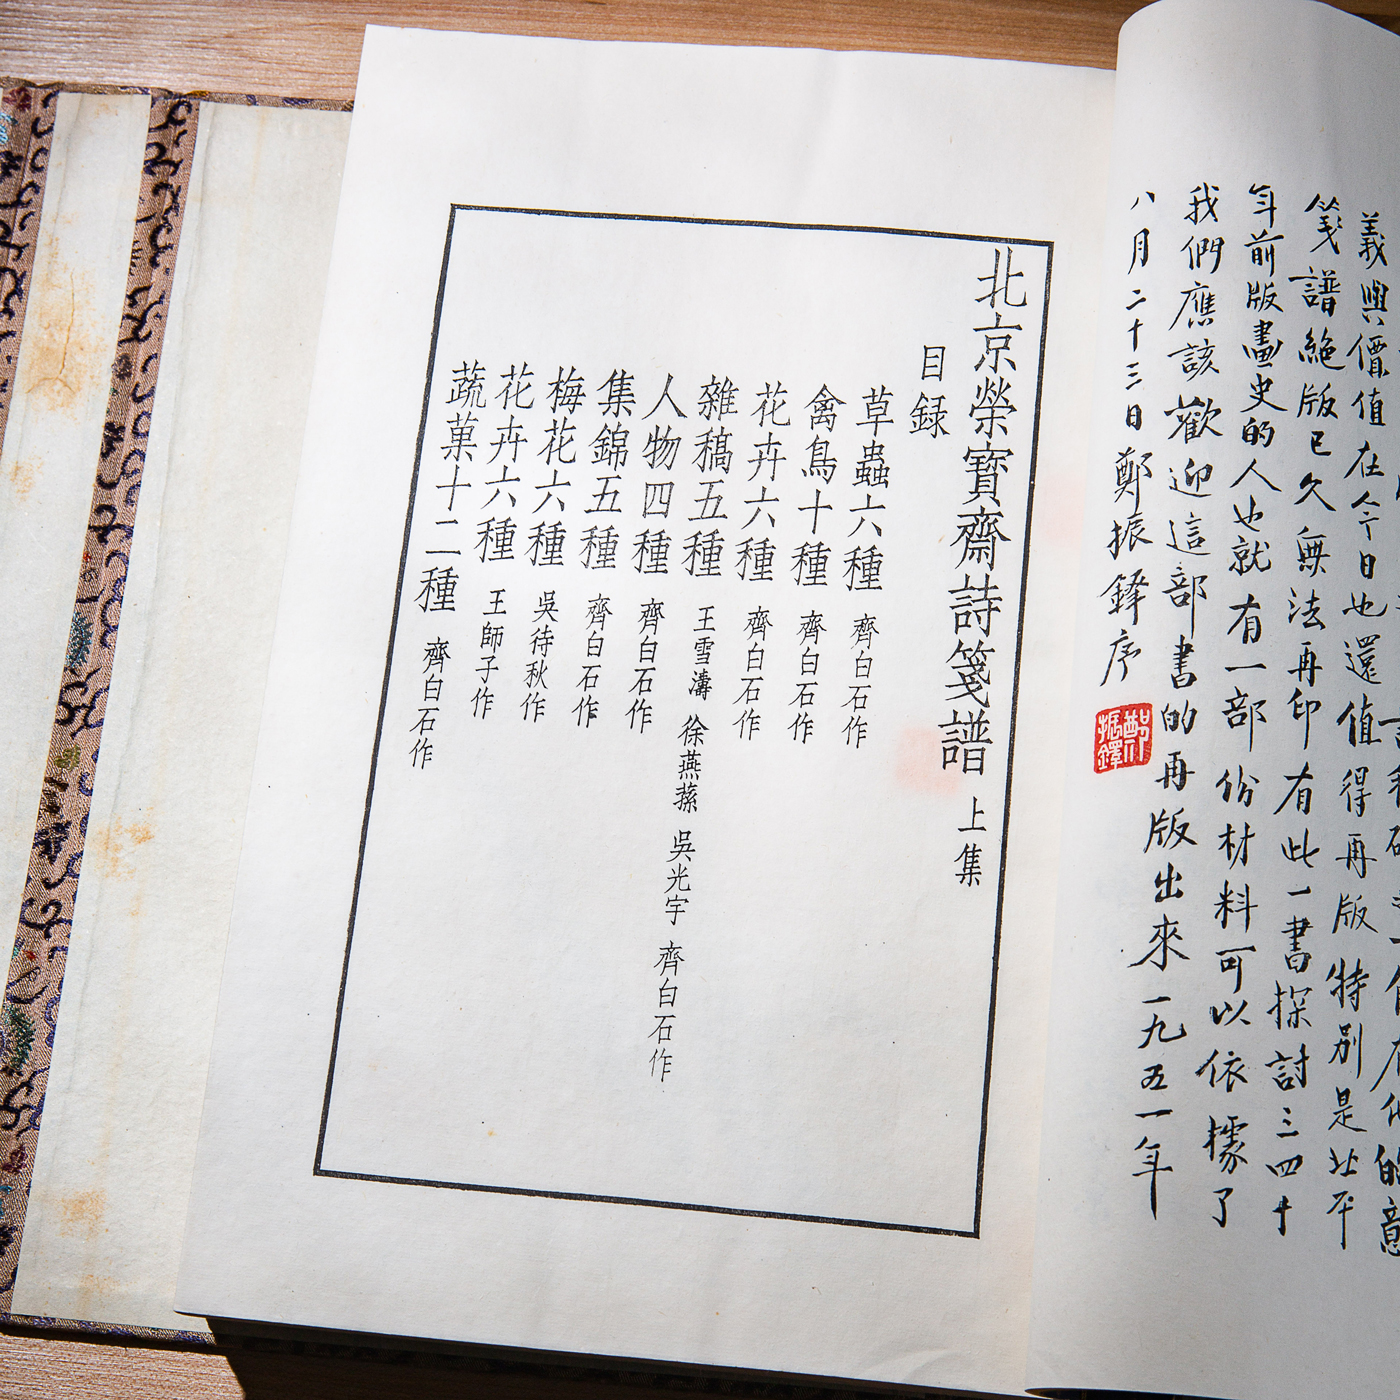 義與價值在今日也還值得再版特別是北平
箋譜絕版已久無法再印有此一書探討三四十
年前版畫史的人也就有一部份材料可以依據了
我們應該歡迎這部書的再版出來一九五一年
八月二十三日鄭振鐸序
鄭振鐸
北京榮寶齋詩箋譜 上集
目録
草蟲六種 齊白石作
禽鳥十種 齊白石作
花卉六種 齊白石作
雜稿五種 王雪濤 徐燕蓀 吳光宇 齊白石作
人物四種 齊白石作
集錦五種 齊白石作
梅花六種 吳待秋作
花卉六種 王師子作
蔬菓十二種 齊白石作